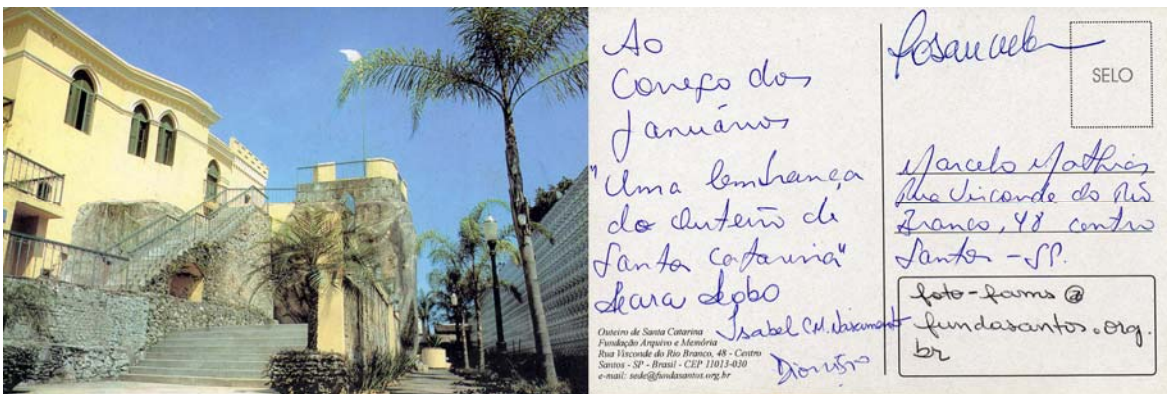 Ao
Conego dos
Januários
"Uma lembrança
do Outeiro de
Santa Catarina"
Isabel C.M. Nascimento
Dionísio
Outeiro de Santa Catarina
Fundação Arquivo e Memória
Rua Visconde do Rio Branco, 48 - Centro
Santos - SP - Brasil - CEP 11013-030
e-mail: sede@fundasantos.org.br
SELO
Marcelo Mathias
Rua Visconde do Rio
Branco, 48 centro
Santos - SP.
foto-fams@
fundasantos.org.
br